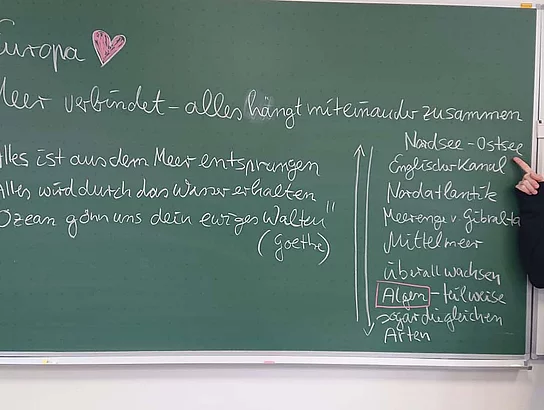 Europa
Meer verbindet - alles hängt miteinander zusammen
Alles ist aus dem Meer entsprungen
Alles wird durch das Wasser erhalten
Ozean gönn uns dein ewiges Walten"
(Goethe)
Nordsee - Ostsee
Englischer Kanal
Nordatlantik
Meerenge v. Gibralta
Mittelmeer
überall wachsen
Algen - teilweise
sogar die gleichen
Arten